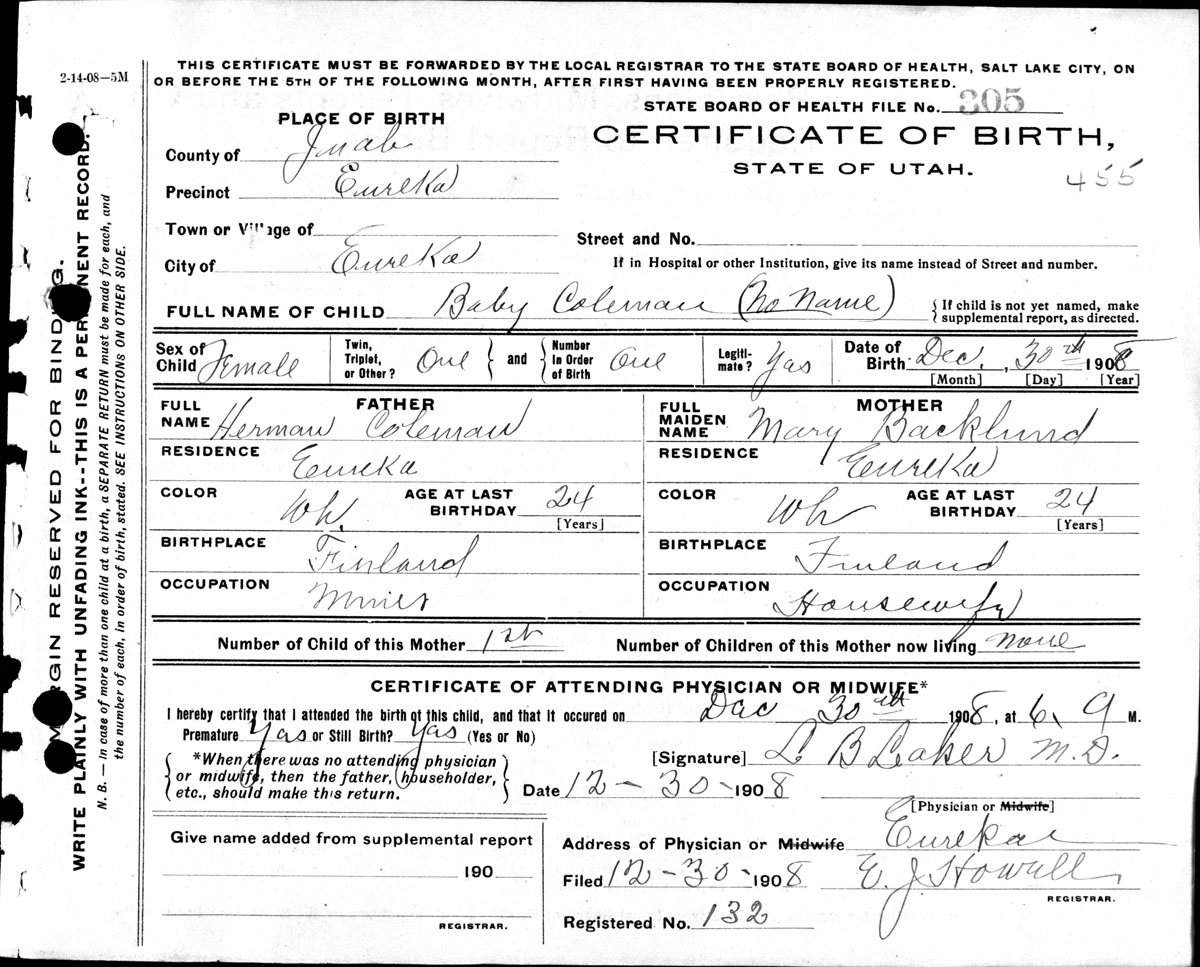 2-14-08—5M
THIS CERTIFICATE MUST BE FORWARDED BY THE LOCAL REGISTRAR TO THE STATE BOARD OF HEALTH, SALT LAKE CITY, ON
OR BEFORE THE 5TH OF THE FOLLOWING MONTH, AFTER FIRST HAVING BEEN PROPERLY REGISTERED.
STATE BOARD OF HEALTH FILE No. 305
CERTIFICATE OF BIRTH,
STATE OF UTAH.
455
PLACE OF BIRTH
County of Juab
Precinct Eureka
Town or Village of
City of Eureka
Street and No.
If in Hospital or other Institution, give its name instead of Street and number.
FULL NAME OF CHILD Baby Coleman (No Name)
{If child is not yet named, make
supplemental report, as directed.
Sex of Child Female
Twin, Triplet, or Other? One } and { Number In Order of Birth One
Legitimate? Yas
Date of Birth Dec. , 30th 1908
[Month] [Day] [Year]
FATHER
FULL NAME Herman Coleman
RESIDENCE Eureka
COLOR Wh. AGE AT LAST BIRTHDAY 24
[Years]
BIRTHPLACE Finland
OCCUPATION Miner
MOTHER
FULL MAIDEN NAME Mary Backlund
RESIDENCE Eureka
COLOR Wh AGE AT LAST BIRTHDAY 24
[Years]
BIRTHPLACE Finland
OCCUPATION Housewife
Number of Child of this Mother 1st Number of Children of this Mother now living none
CERTIFICATE OF ATTENDING PHYSICIAN OR MIDWIFE*
I hereby certify that I attended the birth of this child, and that it occured on Dec 30th 1908, at 6. 9 M.
Premature Yas or Still Birth? Yas (Yes or No)
*When there was no attending physician
or midwife, then the father, householder,
etc., should make this return.
[Signature] L B Laker M.D.
Date 12-30-1908
[Physician or Midwife]
Address of Physician or Midwife Eureka
Filed 12-30-1908 E. J. Howell
REGISTRAR.
Registered No. 132
Give name added from supplemental report
190
REGISTRAR.
MARGIN RESERVED FOR BINDING.
WRITE PLAINLY WITH UNFADING INK--THIS IS A PERMANENT RECORD.
N. B. — In case of more than one child at a birth, a SEPARATE RETURN must be made for each, and
the number of each, in order of birth, stated. SEE INSTRUCTIONS ON OTHER SIDE.